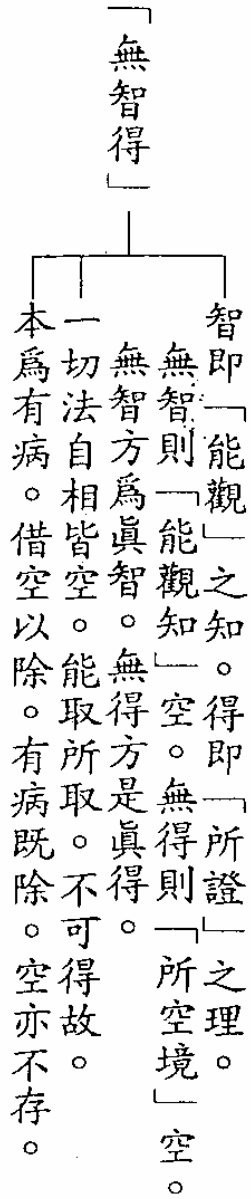 「無智得」
智即「能觀」之知。得即「所證」之理。
無智則「能觀知」空。無得則「所空境」空。
無智方爲眞智。無得方是眞得。
一切法自相皆空。能取所取。不可得故。
本爲有病。借空以除。有病既除。空亦不存。